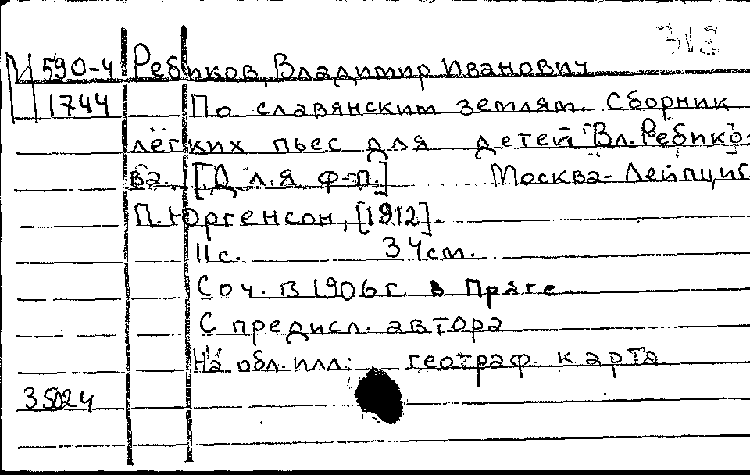 М 590-4 Ребиков, Владимир Иванович
1744 По славянским землям. Сборник
лёгких пьес для детей Вл. Ребико-
ва. [Для ф-п.] Москва-Лейпциг
П. Юргенсон, [1912].
11 с. 34 см.
Соч. в 1906 г. в Праге
С предисл. автора
На обл. илл: географ. карта
35024